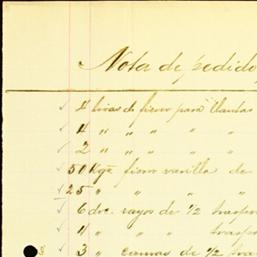 Nota de pedido
4 tiras de fierro para llantas
4 " " " " "
2 " " " " "
50 Kgs fierro varilla de
25 "
6 doc. rayos de 1/2
4 " " "
3 " camas de 1/2